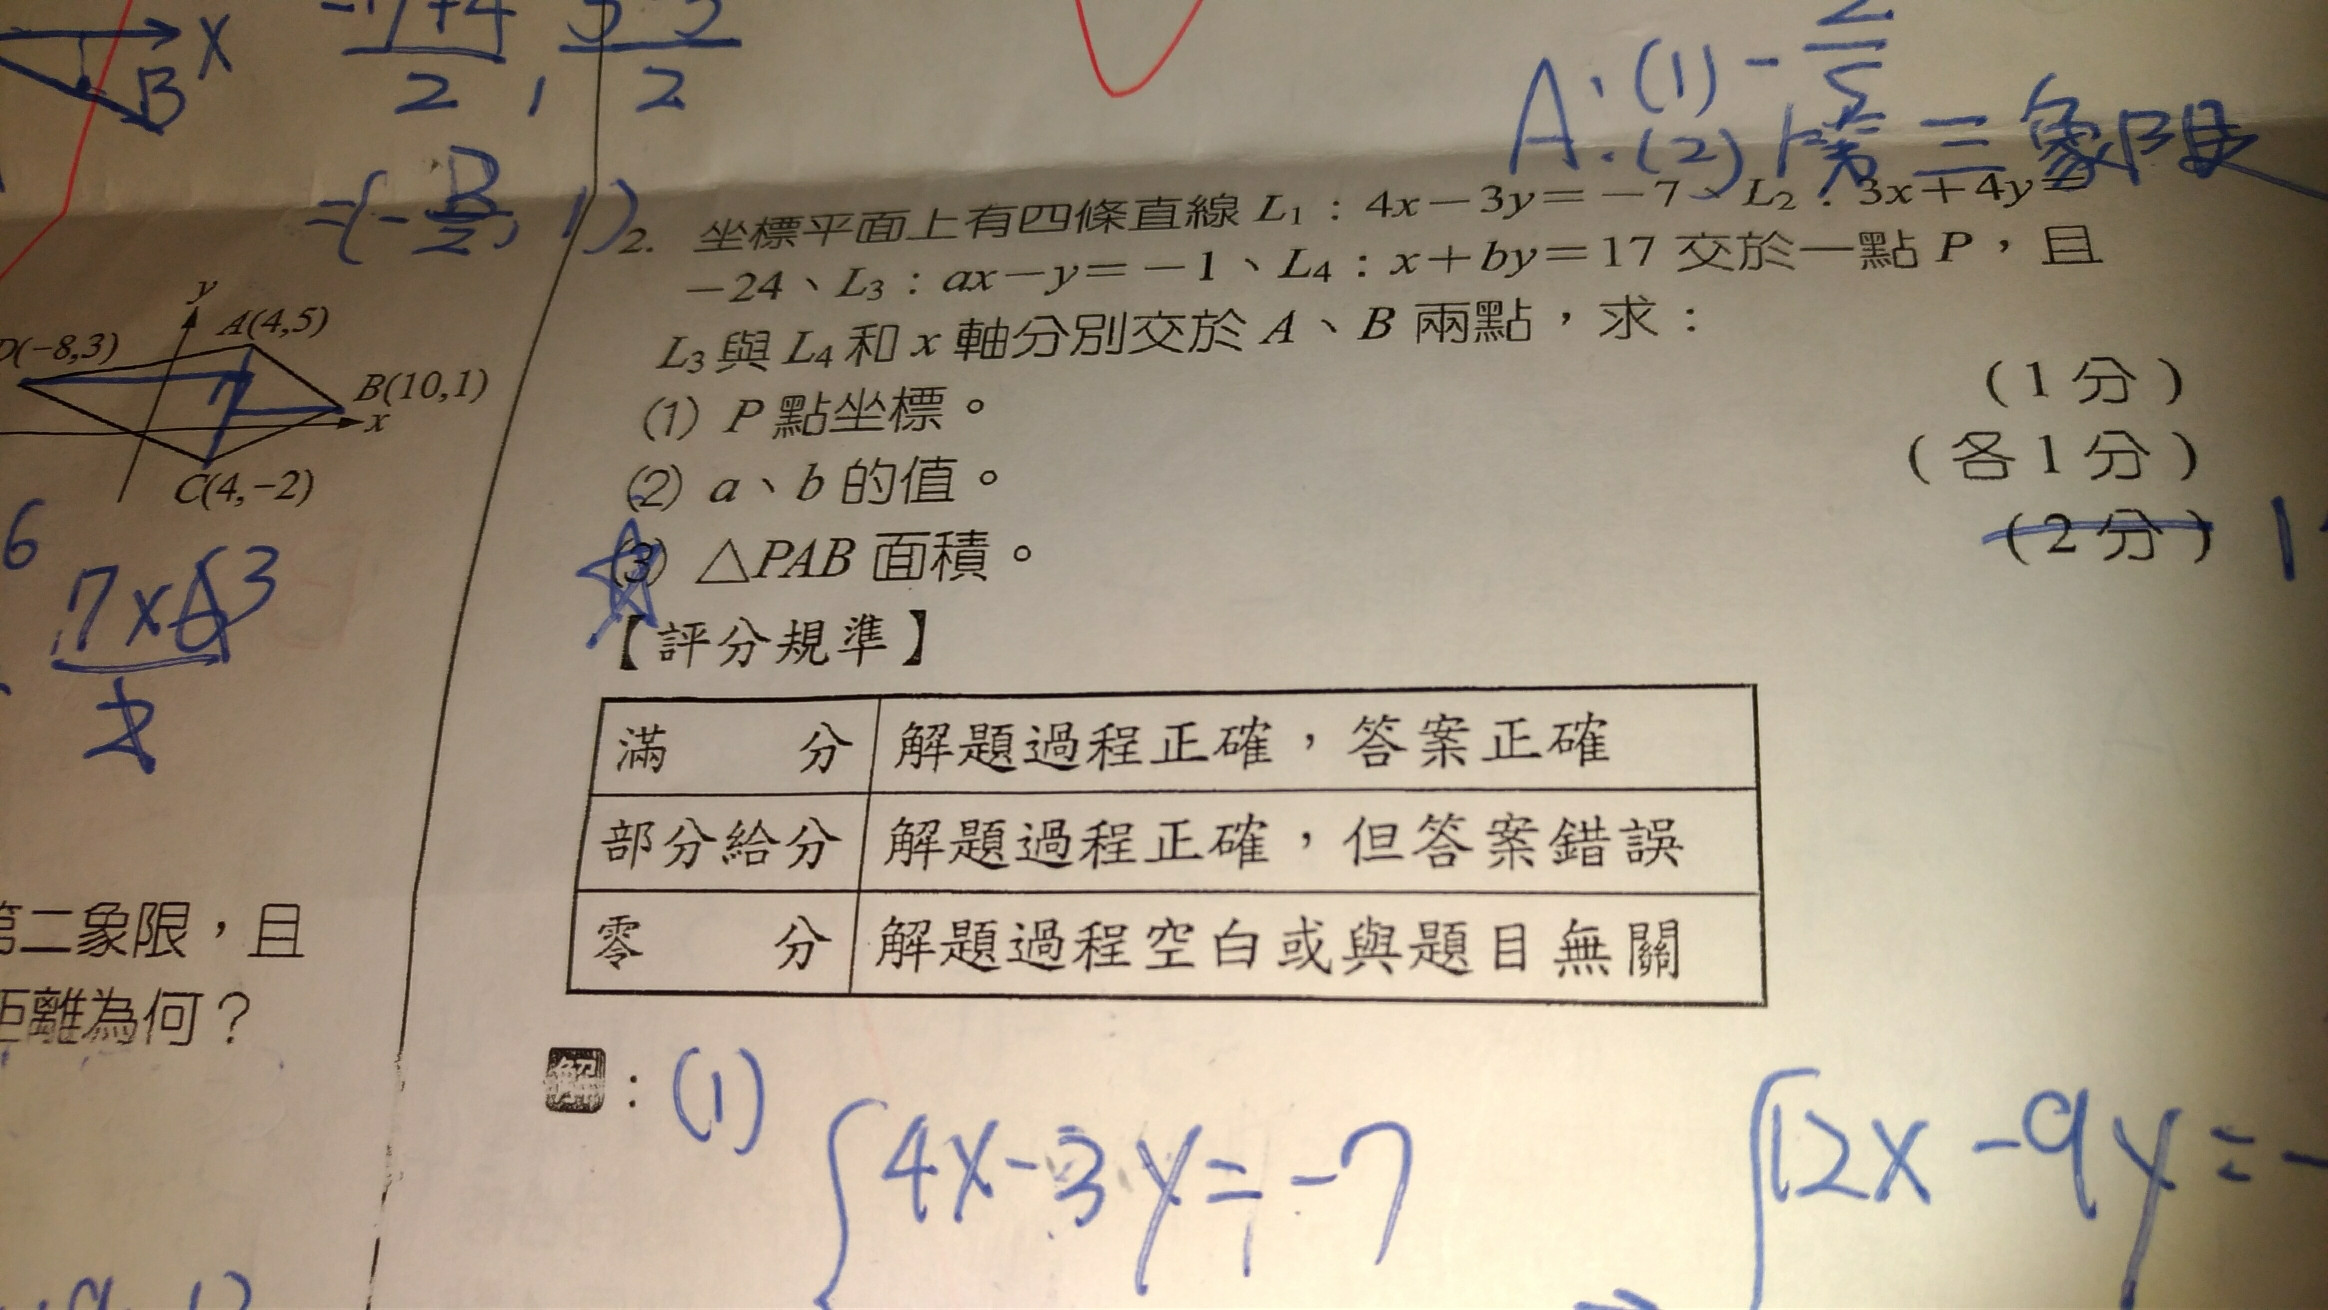 X
B
2 , 2
A: (1) -2/5
(2) 第三象限
2. 坐標平面上有四條直線 L1：4x－3y＝－7、L2：3x＋4y＝
－24、L3：ax－y＝－1、L4：x＋by＝17 交於一點 P，且
L3 與 L4 和 x 軸分別交於 A、B 兩點，求：
(1) P 點坐標。 (1 分)
(2) a、b 的值。 (各 1 分)
(3) △PAB 面積。 (2 分)
【評分規準】
滿 分 解題過程正確，答案正確
部分給分 解題過程正確，但答案錯誤
零 分 解題過程空白或與題目無關
解：(1)
4x-3y=-7
12x-9y=-
y
A(4,5)
D(-8,3)
B(10,1)
x
C(4,-2)
7
6
7x6 3
2
第二象限，且
距離為何？